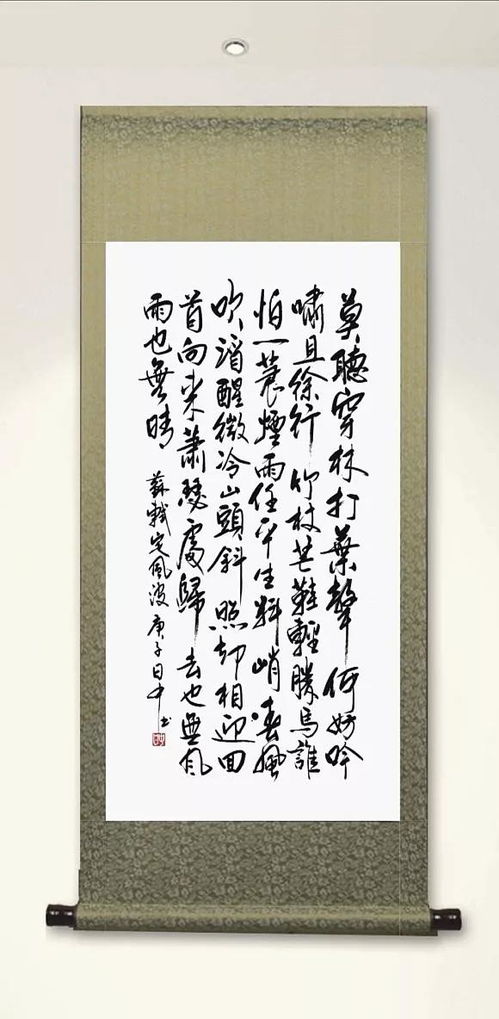 莫聽穿林打葉聲何妨吟
嘯且徐行竹杖芒鞋輕勝馬誰
怕一蓑煙雨任平生料峭春風
吹酒醒微冷山頭斜照却相迎回
首向来蕭瑟處歸去也無風
雨也無晴 蘇軾定風波 庚子日中书